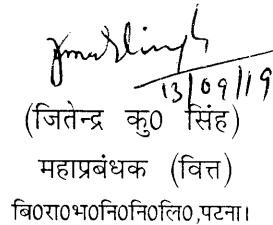 13/09/19
(जितेन्द्र कु0 सिंह)
महाप्रबंधक (वित्त)
बि0रा0भ0नि0नि0लि0,पटना।